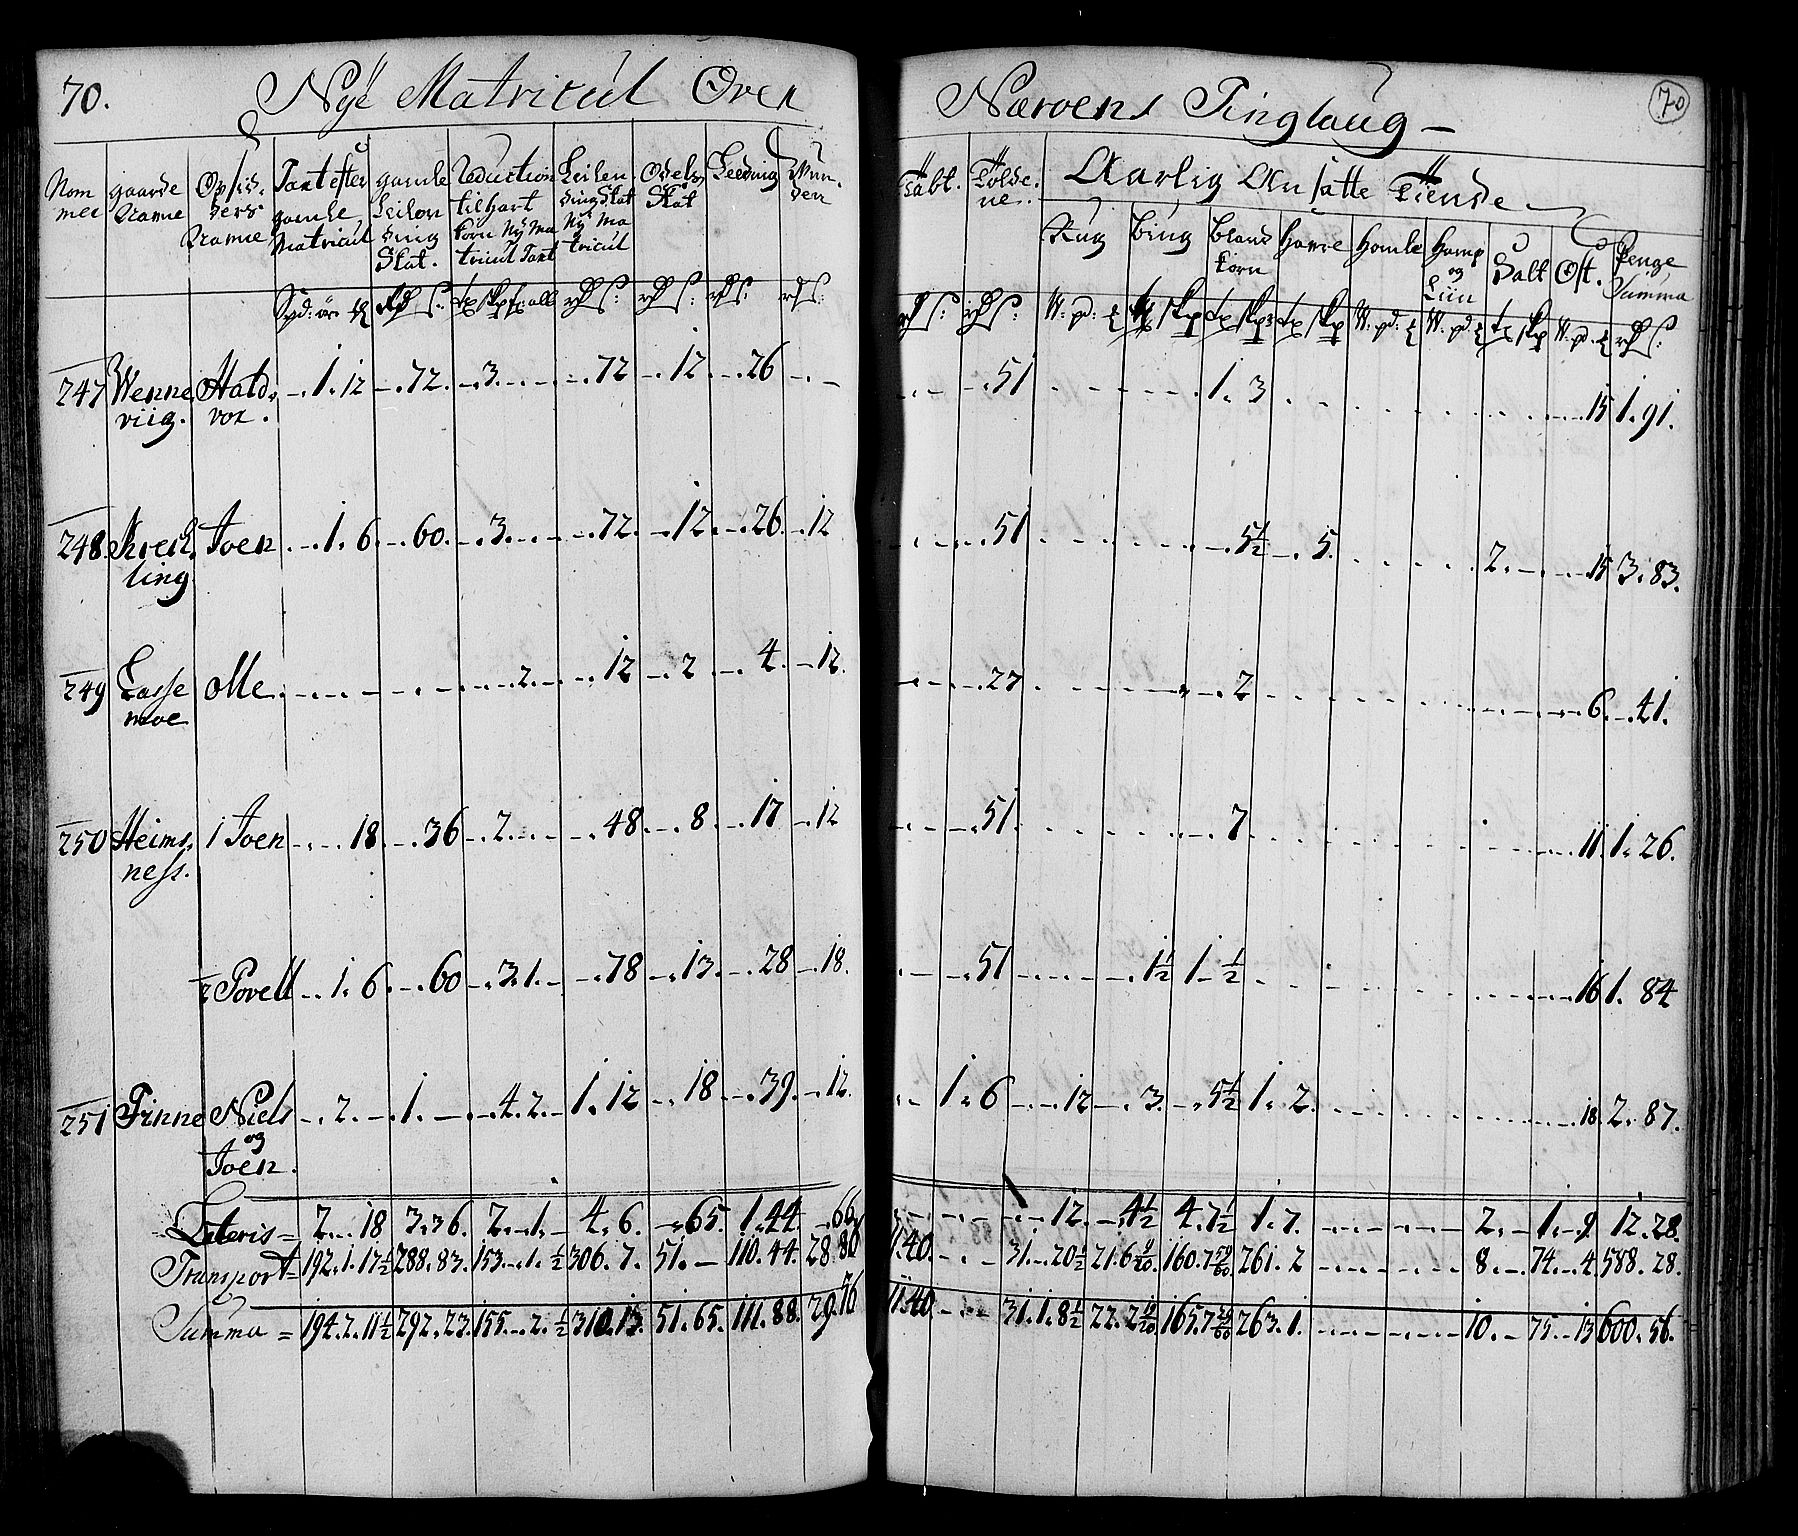 70. Nÿe Matricul Over Nærøens Tinglaug – 70
Nom
mer
gaarde
Navne
Opsid.
ders
Navne
Taxt efter
gamle
Matricul
gamle
Leilen
ding
Skat.
Reduction
til hart
korn Nÿ Ma
tricul Taxt
Leilen
ding Skat
Nÿ Ma
tricul
Odels
Skat
Leeding
Told
ne.
Aarlig Ansatte Tiende
Rug Bÿug Bland
korn Havre Homle Hamp
og
Liin Salt Ost. Penge
Summa
247 Wenne Hald. 1. 12 72. 3. 72 12 26 51 1. 3 15 1. 91.
viig. vor.
248. Joen 1. 6 60. 3. 72. 12. 26. 12 51 5½ 5. 2. 15 3. 83.
ling
249 Lasse Olle 2. 12 2 4. 12. 27 2 6. 41.
moe
250 Heims. 1 Joen 18. 36 2. 48. 8. 17 12 51. 7. 11. 1. 26.
ness.
2 Povell 1. 6. 60 3. 1. 78 13. 28 18. 51 1½ 1. ½ 16 1. 84
251 Finne Niels 2. 1. 4. 2. 1. 12 18 39. 12. 1. 6 12 3. 5½ 1. 2. 18. 2. 87.
og
Joen.
Lateris = 2. 18 3. 36. 2. 1. 4. 6. 65. 1. 44. 66 12. 4½ 4. 7½ 1. 7. 2. 1. 9 12. 28.
Transport = 192. 1. 17½ 288. 83. 153. 1. ½ 306. 7. 51. – 110. 44. 28. 80 40. 31. 20½ 21. 6 160. 7 261. 2 8. 74. 4 588. 28.
Summa = 194. 2. 11½ 292. 23. 155. 2. ½ 310. 13. 51. 65. 111. 88. 29. 76 40. 31. 1. 8½ 22. 2 165. 7 263. 1. 10. 75. 13 600. 56.